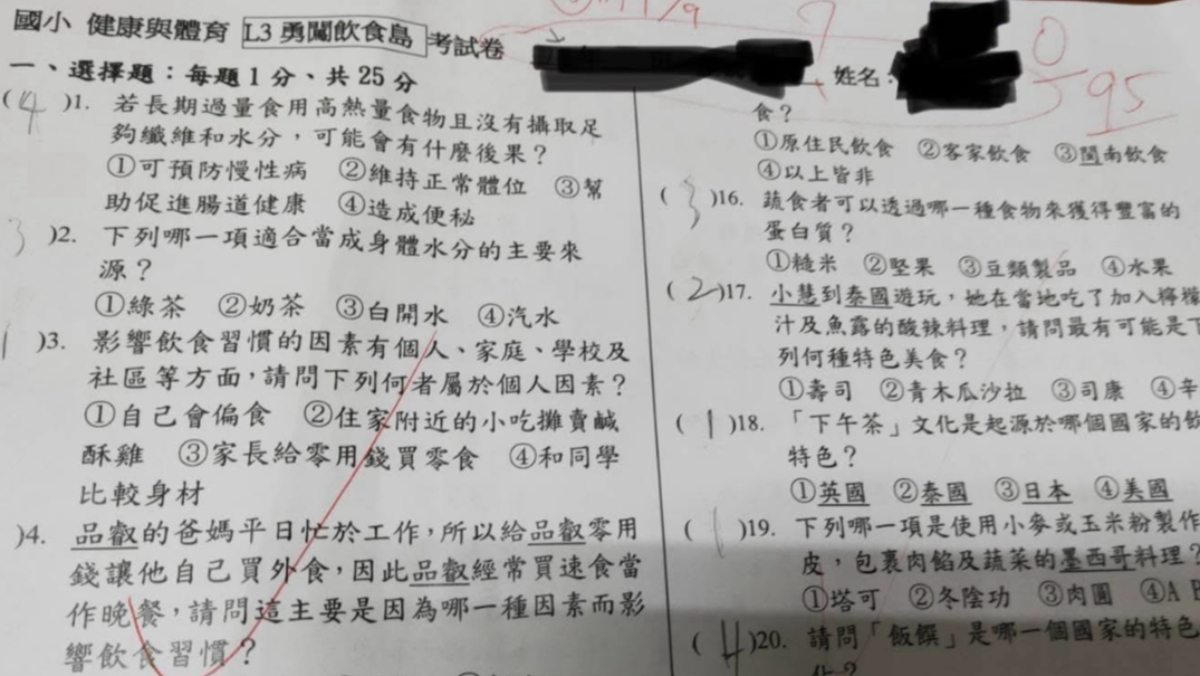 國小 健康與體育 L3勇闖飲食島 考試卷
姓名:
95
一、選擇題：每題1分、共25分
(4)1. 若長期過量食用高熱量食物且沒有攝取足
夠纖維和水分，可能會有什麼後果？
①可預防慢性病 ②維持正常體位 ③幫
助促進腸道健康 ④造成便秘
3 )2. 下列哪一項適合當成身體水分的主要來
源？
①綠茶 ②奶茶 ③白開水 ④汽水
1 )3. 影響飲食習慣的因素有個人、家庭、學校及
社區等方面，請問下列何者屬於個人因素？
①自己會偏食 ②住家附近的小吃攤賣鹹
酥雞 ③家長給零用錢買零食 ④和同學
比較身材
)4. 品叡的爸媽平日忙於工作，所以給品叡零用
錢讓他自己買外食，因此品叡經常買速食當
作晚餐，請問這主要是因為哪一種因素而影
響飲食習慣？
食？
①原住民飲食 ②客家飲食 ③閩南飲食
④以上皆非
(3)16. 蔬食者可以透過哪一種食物來獲得豐富的
蛋白質？
①糙米 ②堅果 ③豆類製品 ④水果
(2)17. 小慧到泰國遊玩，她在當地吃了加入檸檬
汁及魚露的酸辣料理，請問最有可能是下
列何種特色美食？
①壽司 ②青木瓜沙拉 ③司康 ④辛
(1)18. 「下午茶」文化是起源於哪個國家的飲
特色？
①英國 ②泰國 ③日本 ④美國
(1)19. 下列哪一項是使用小麥或玉米粉製作
皮，包裹肉餡及蔬菜的墨西哥料理？
①塔可 ②冬陰功 ③肉圓 ④A
(4)20. 請問「飯饌」是哪一個國家的特色
化？